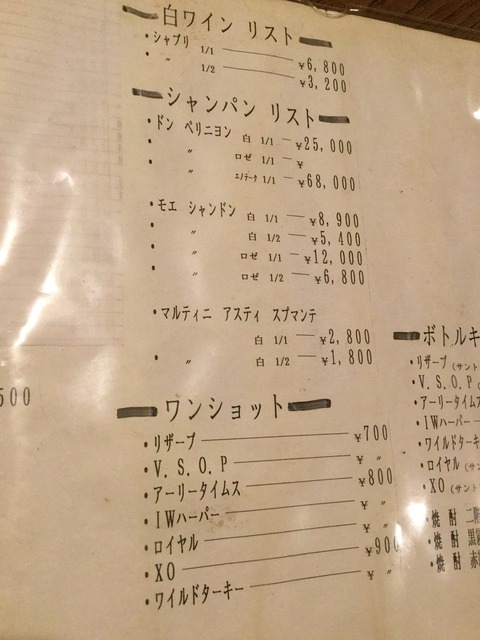 白ワイン リスト
・シャブリ 1/1 ¥6,800
・ 〃 1/2 ¥3,200
シャンパン リスト
・ドン ペリニヨン 白 1/1 ¥25,000
・ 〃 ロゼ 1/1 ¥
・ 〃 エノテーク 1/1 ¥68,000
・モエ シャンドン 白 1/1 ¥8,900
・ 〃 白 1/2 ¥5,400
・ 〃 ロゼ 1/1 ¥12,000
・ 〃 ロゼ 1/2 ¥6,800
・マルティニ アスティ スプマンテ
白 1/1 ¥2,800
・ 〃 白 1/2 ¥1,800
500
ワンショット
・リザーブ ¥700
・V.S.O.P ¥ 〃
・アーリータイムス ¥800
・IWハーパー ¥ 〃
・ロイヤル ¥ 〃
・XO ¥900
・ワイルドターキー ¥ 〃
ボトルキ
・リザーブ (サント
・V.S.O.P (
・アーリータイムス
・IWハーパー
・ワイルドターキ
・ロイヤル (サ
・XO (サント
・焼酎 二階
・焼酎 黒
・焼酎 赤